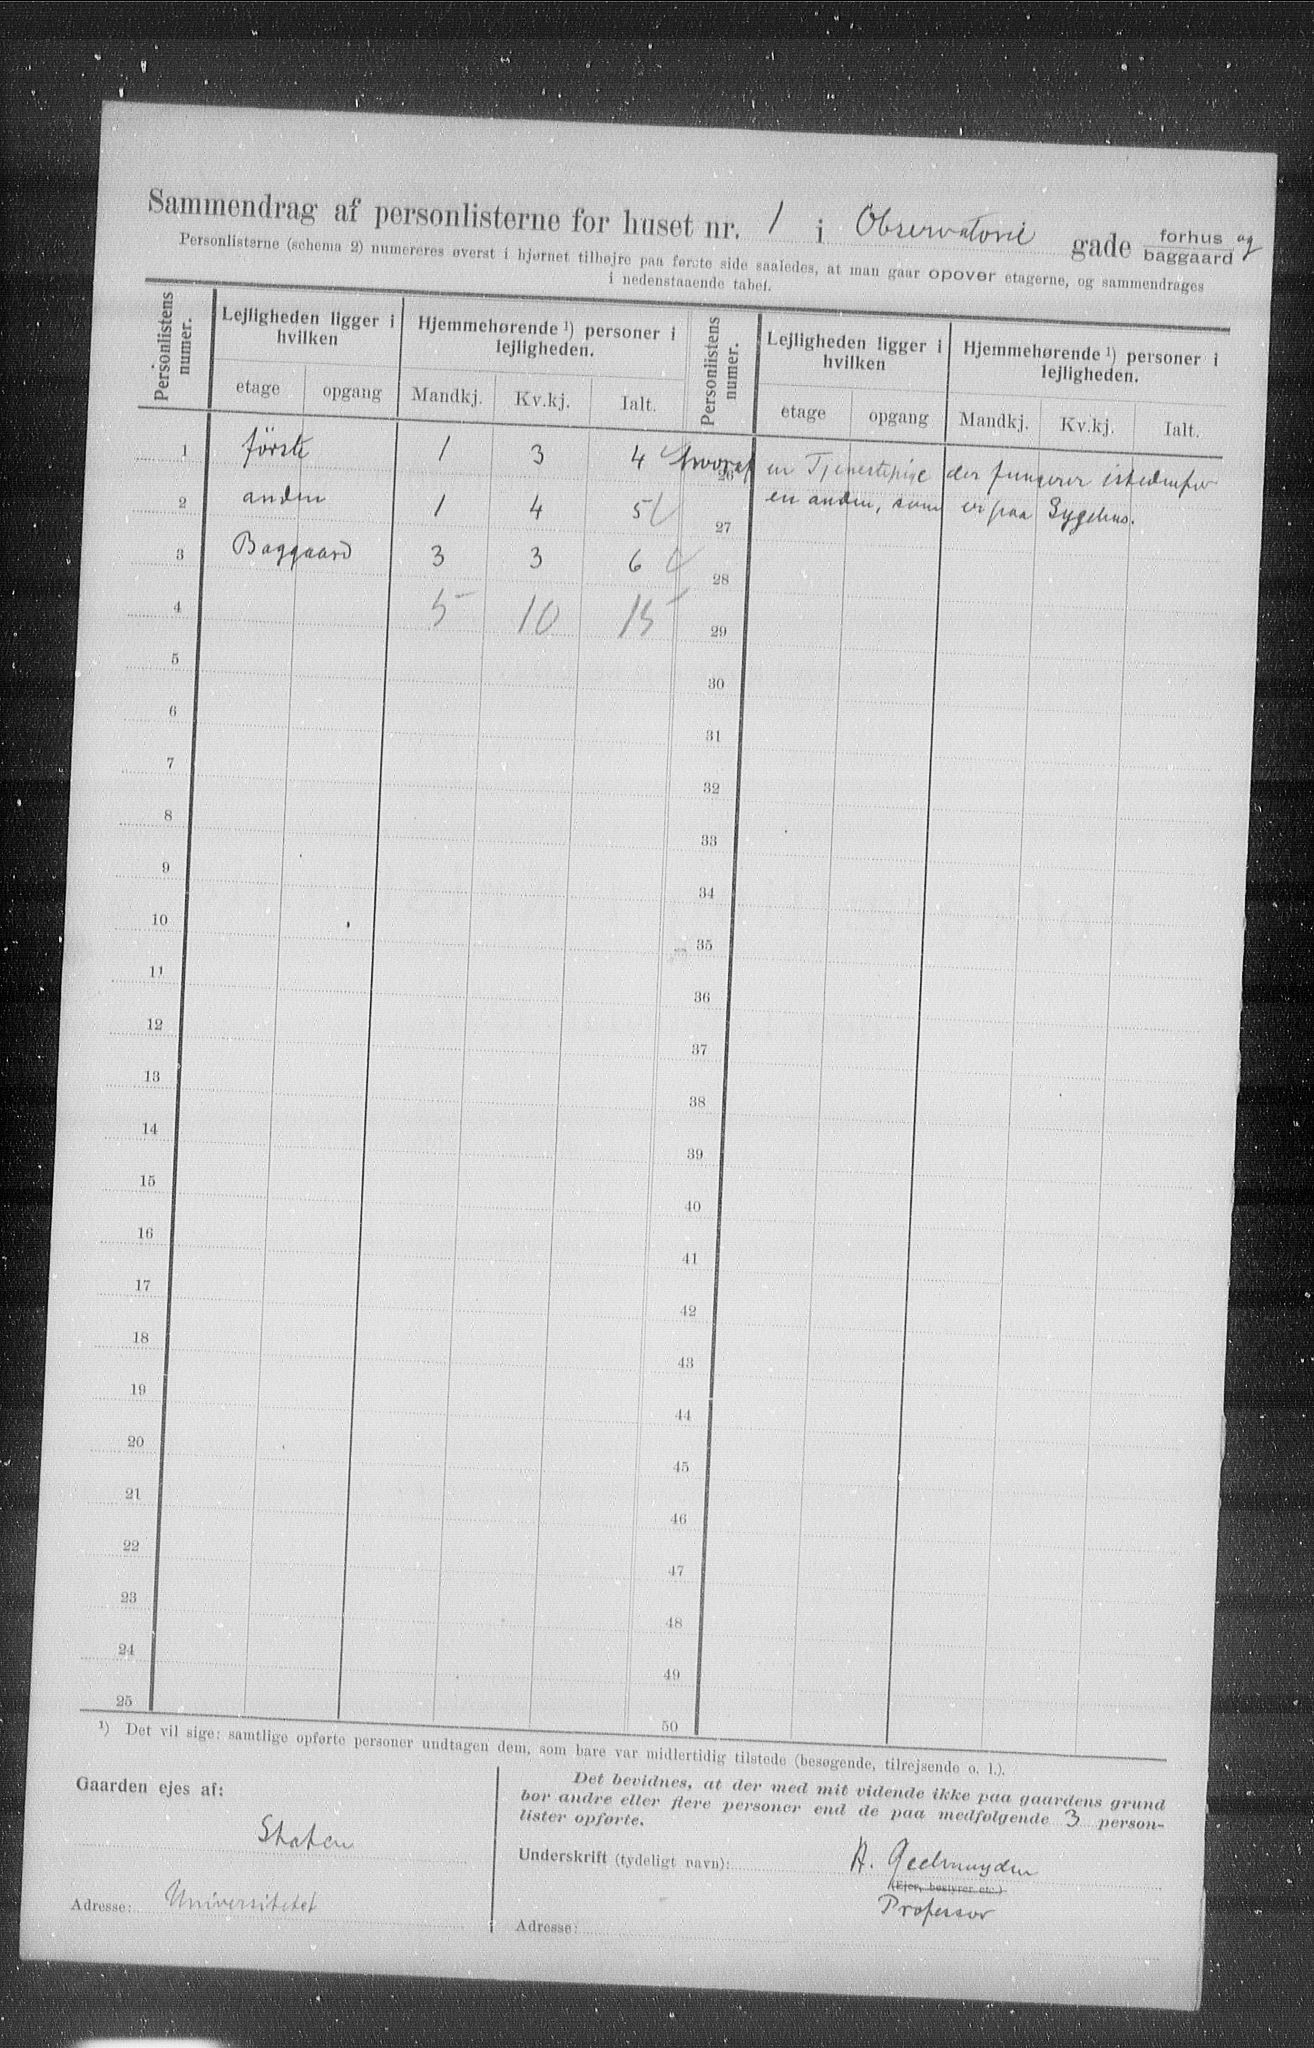 Sammendrag af personlisterne for huset nr. 1 i Observatorie gade forhus og baggaard
Personlisterne (schema 2) numereres øverst i hjørnet tilhøjre paa første side saaledes, at man gaar opover etagerne, og sammendrages
i nedenstaaende tabel.
Personlistens numer. Lejligheden ligger i hvilken Hjemmehørende ¹) personer i lejligheden. Personlistens numer. Lejligheden ligger i hvilken Hjemmehørende ¹) personer i lejligheden.
etage opgang Mandkj. Kv.kj. Ialt. etage opgang Mandkj. Kv.kj. Ialt.
1 første 1 3 4 hvoraf 26 en Tjenestepige der fungerer istedenfor
2 anden 1 4 5 27 en anden, som er paa Sygehus.
3 Baggaard 3 3 6 28
4 5 10 15 29
5 30
6 31
7 32
8 33
9 34
10 35
11 36
12 37
13 38
14 39
15 40
16 41
17 42
18 43
19 44
20 45
21 46
22 47
23 48
24 49
25 50
¹) Det vil sige: samtlige opførte personer undtagen dem, som bare var midlertidig tilstede (besøgende, tilrejsende o. l.).
Gaarden ejes af:
Staten
Adresse: Universitetet
Det bevidnes, at der med mit vidende ikke paa gaardens grund
bor andre eller flere personer end de paa medfølgende 3 person-
lister opførte.
Underskrift (tydeligt navn): H. Geelmuyden
(Ejer, bestyrer etc.)
Professor
Adresse: